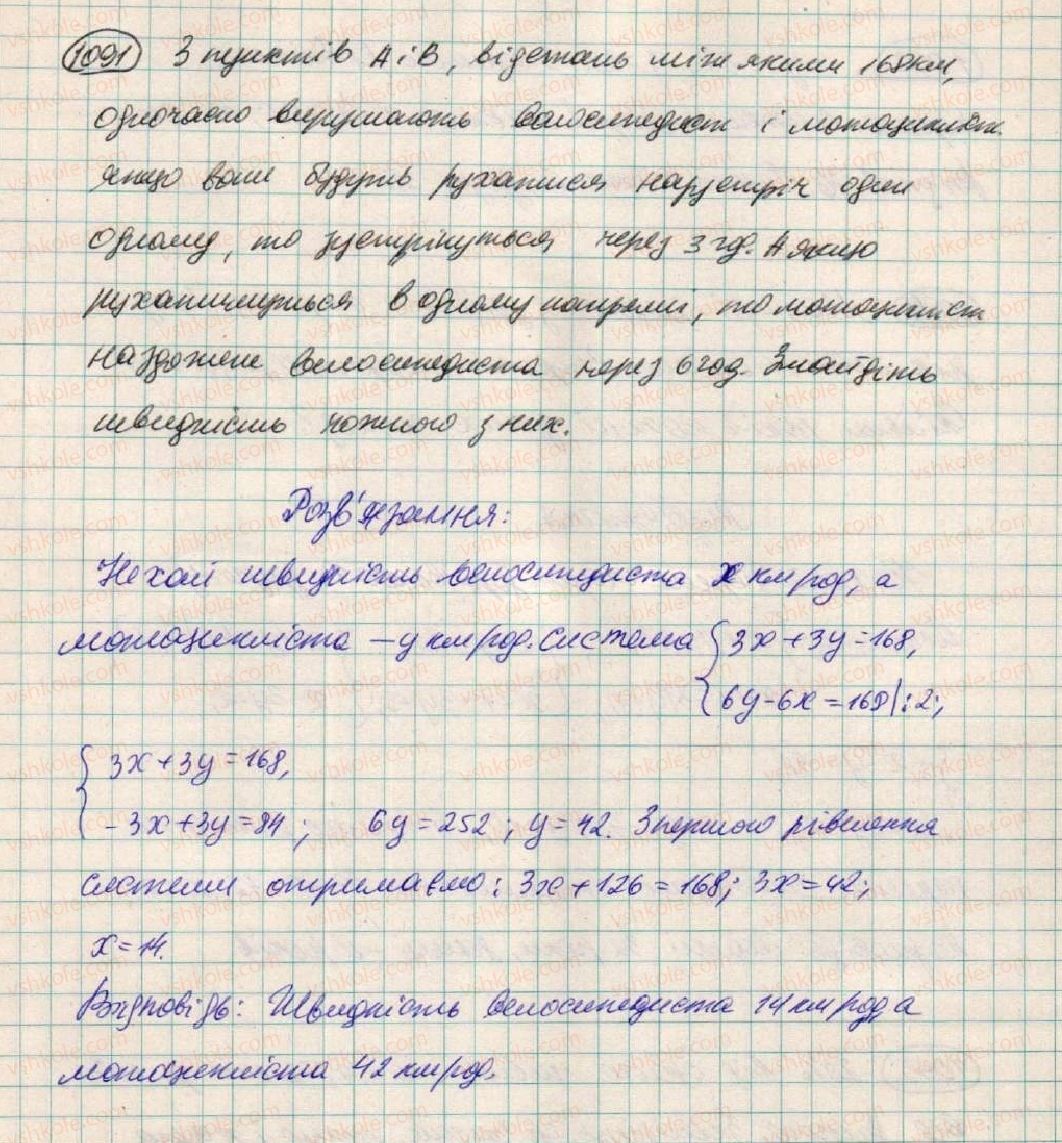 1091 З пунктів А і В, відстань між якими 168км,
одночасно вирушають велосипедист і мотоцикліст.
якщо вони будуть рухатися назустріч один
одному, то зустрінуться через 3 год. А якщо
рухатимуться в одному напрямі, то мотоцикліст
наздожене велосипедиста через 6 год. Знайдіть
швидкість кожного з них.
Розв'язання:
Нехай швидкість велосипедиста х км/год, а
мотоцикліста – у км/год. система { 3х + 3у = 168,
6у - 6х = 168 | : 2;
{ 3х + 3у = 168,
- 3х + 3у = 84 ; 6у = 252 ; у = 42. З першого рівняння
системи отримаємо: 3х + 126 = 168; 3х = 42;
х = 14.
Відповідь: Швидкість велосипедиста 14 км/год, а
мотоцикліста 42 км/год.